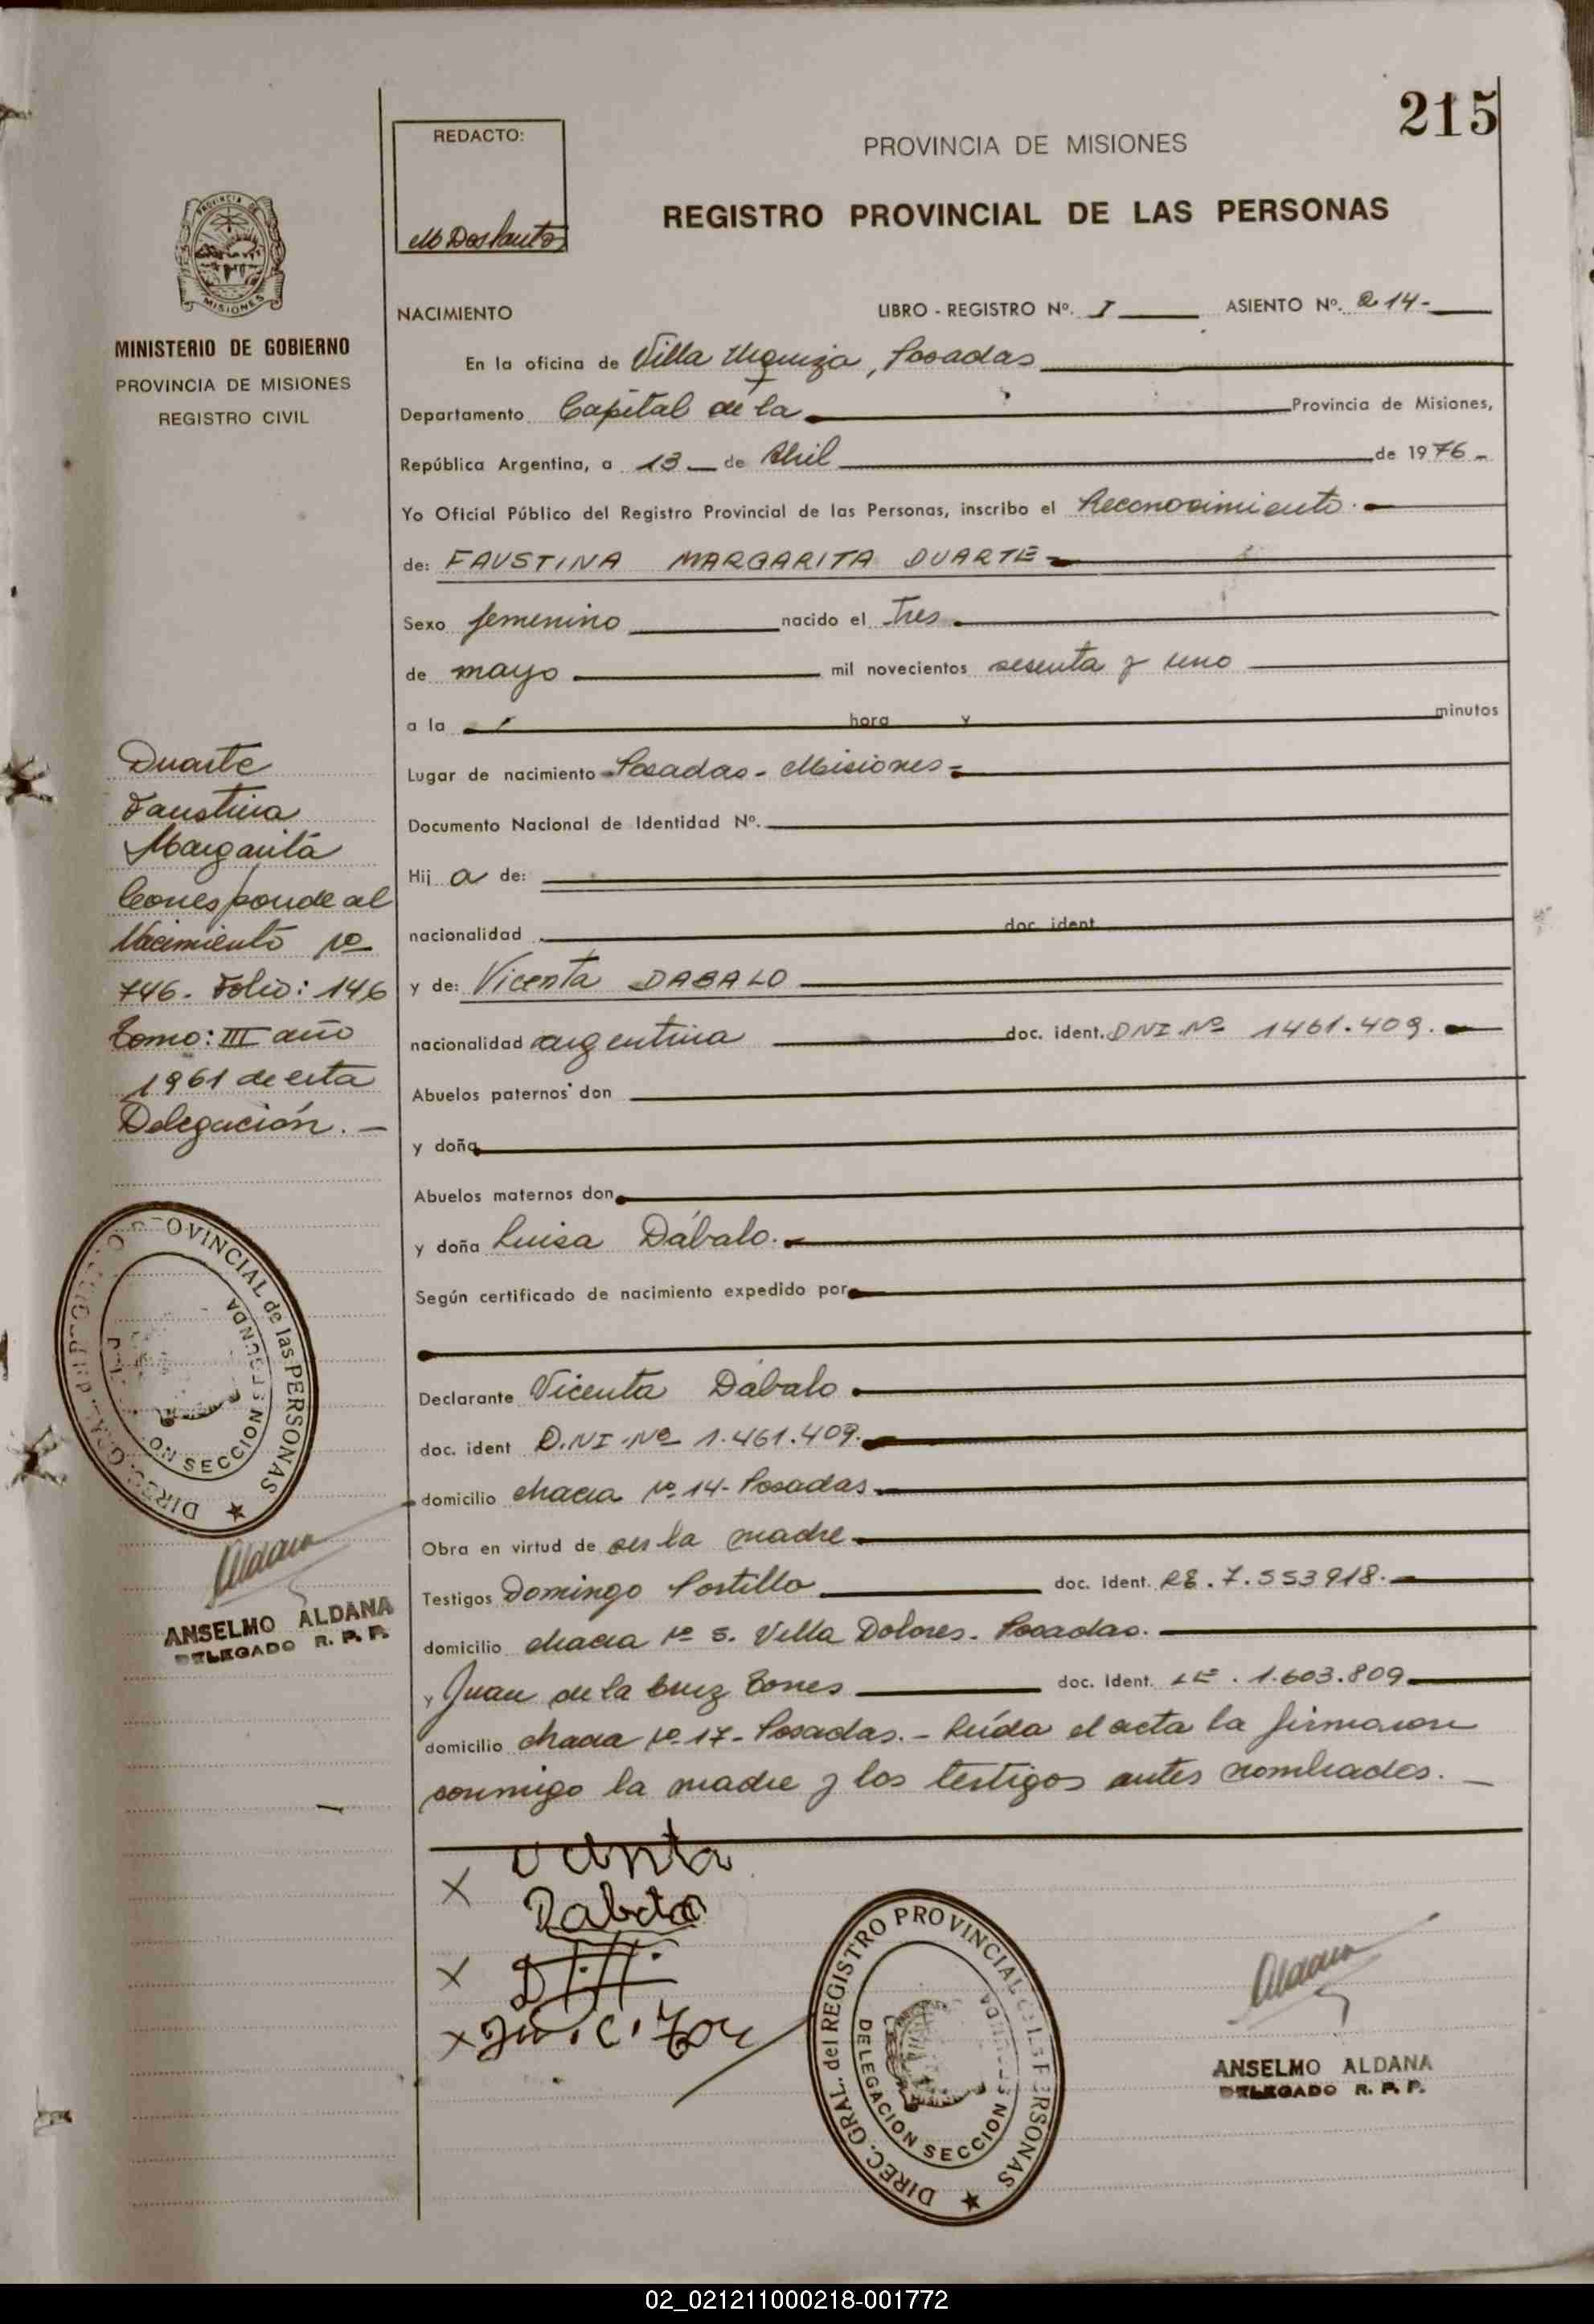 215
REDACTO:
PROVINCIA DE MISIONES
REGISTRO PROVINCIAL DE LAS PERSONAS
NACIMIENTO LIBRO - REGISTRO Nº. I ASIENTO Nº. 214-
En la oficina de Villa Urquiza, Posadas
Departamento Capital de la Provincia de Misiones,
República Argentina, a 13 de Abril de 1976-
Yo Oficial Público del Registro Provincial de las Personas, inscribo el Reconocimiento.
de: FAUSTINA MARGARITA DUARTE
Sexo femenino nacido el Tres
de mayo mil novecientos sesenta y uno
a la hora y minutos
Lugar de nacimiento Posadas- Misiones-
Documento Nacional de Identidad Nº.
Hij a de:
nacionalidad doc. ident.
y de: Vicenta DABALO
nacionalidad argentina doc. ident. DNI Nº 1461.409.
Abuelos paternos don
y doña
Abuelos maternos don
y doña Luisa Dábalo.
Según certificado de nacimiento expedido por
Declarante Vicenta Dábalo
doc. ident D.NI.Nº 1.461.409.
domicilio chacra Nº 14- Posadas
Obra en virtud de ser la madre
Testigos Domingo Portillo doc. ident. 7.553918.
domicilio chacra Nº 5. Villa Dolores. Posadas.
y Juan de la Cruz Torres doc. Ident. LE. 1.603.809
domicilio chacra Nº 17- Posadas.- Leída el acta la firmaron
conmigo la madre y los testigos antes nombrados.
MISIONES
MINISTERIO DE GOBIERNO
PROVINCIA DE MISIONES
REGISTRO CIVIL
Duarte
Faustina
Margarita
Corresponde al
Nacimiento Nº
746. Folio: 146
Tomo: III año
1961 de esta
Delegación.-
DIREC. GRAL. del REGISTRO PROVINCIAL de las PERSONAS
SECCION SEGUNDA
Aldana
ANSELMO ALDANA
DELEGADO R. P. P.
X
X
X
DIREC. GRAL. del REGISTRO PROVINCIAL de las PERSONAS
DELEGACION SECCION SEGUNDA
Aldana
ANSELMO ALDANA
DELEGADO R. P. P.
02_021211000218-001772